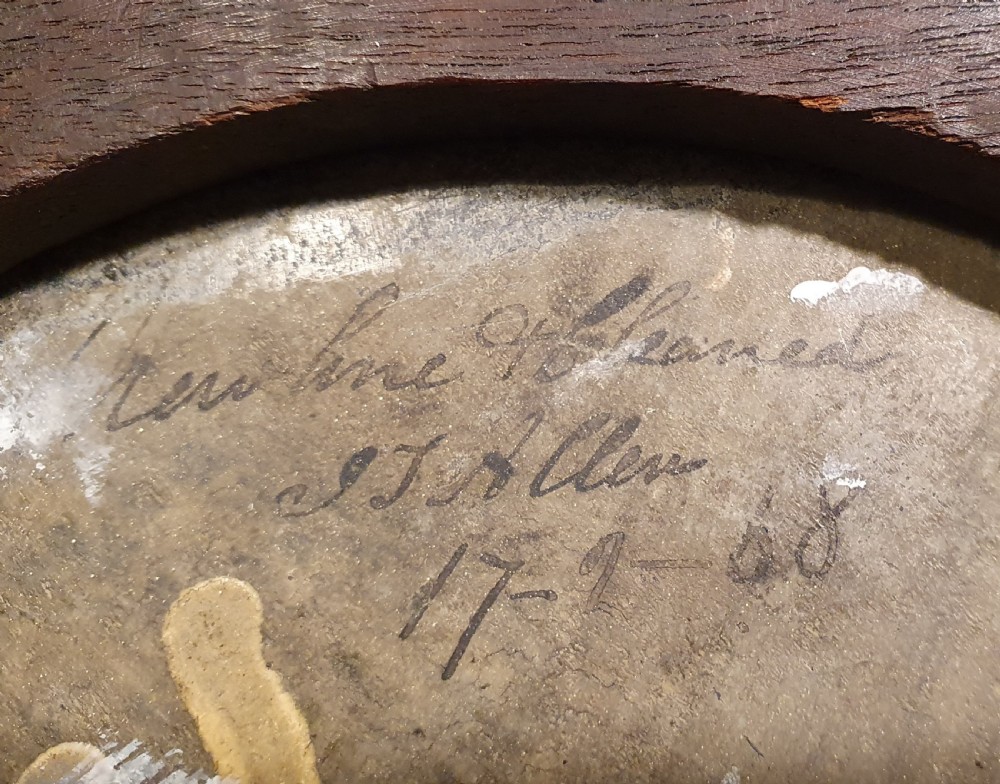 New line & Cleaned
J J Allen
17-2-68